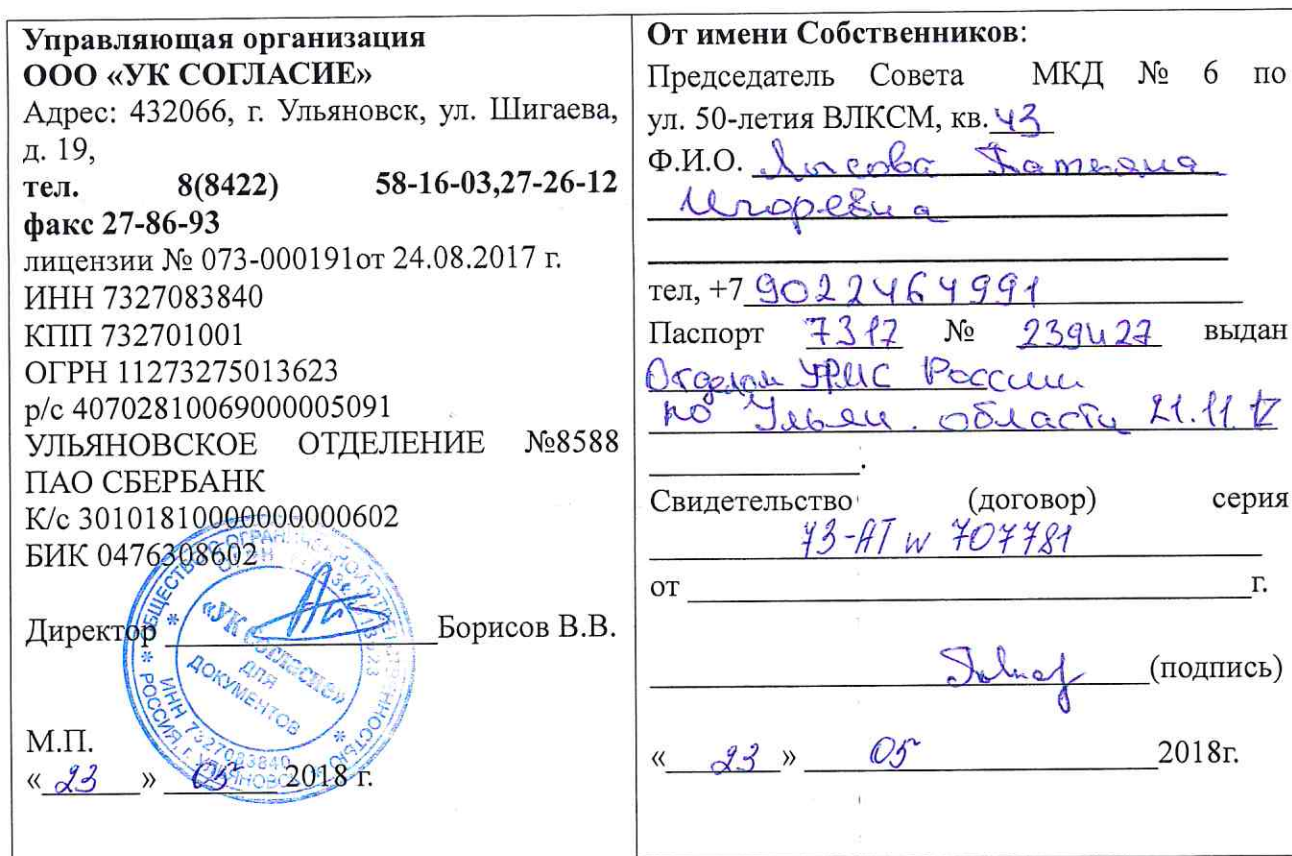 Управляющая организация
ООО «УК СОГЛАСИЕ»
Адрес: 432066, г. Ульяновск, ул. Шигаева,
д. 19,
тел. 8(8422) 58-16-03,27-26-12
факс 27-86-93
лицензии № 073-000191от 24.08.2017 г.
ИНН 7327083840
КПП 732701001
ОГРН 11273275013623
р/с 40702810069000005091
УЛЬЯНОВСКОЕ ОТДЕЛЕНИЕ №8588
ПАО СБЕРБАНК
К/с 30101810000000000602
БИК 0476308602
Директор Борисов В.В.
«УК Согласие»
ДЛЯ
ДОКУМЕНТОВ
ИНН 7327083840
РОССИЯ, г. УЛЬЯНОВСК
М.П.
« 23 » 05 2018 г.
От имени Собственников:
Председатель Совета МКД № 6 по
ул. 50-летия ВЛКСМ, кв. 43
Ф.И.О. Лысова Татьяна
Игоревна
тел, +7 9022464991
Паспорт 7317 № 239427 выдан
Отделом УФМС России
по Ульян. области 21.11.17
Свидетельство (договор) серия
73-АТ № 707781
от г.
(подпись)
« 23 » 05 2018г.